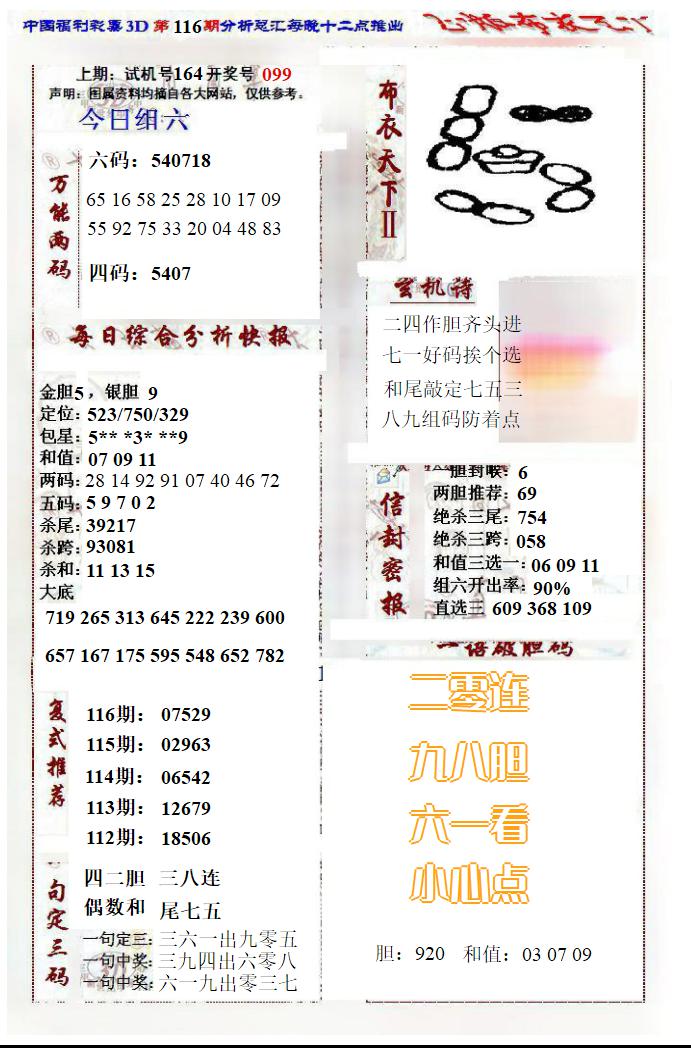 中国福利彩票3D 第116期分析总汇每晚十二点推出
上期：试机号164开奖号 099
声明：图属资料均摘自各大网站，仅供参考。
今日组六
万能两码
六码：540718
65 16 58 25 28 10 17 09
55 92 75 33 20 04 48 83
四码：5407
每日综合分析快报
金胆5，银胆 9
定位：523/750/329
包星：5** *3* **9
和值：07 09 11
两码：28 14 92 91 07 40 46 72
五码：5 9 7 0 2
杀尾：39217
杀跨：93081
杀和：11 13 15
大底
719 265 313 645 222 239 600
657 167 175 595 548 652 782
复式推荐
116期： 07529
115期： 02963
114期： 06542
113期： 12679
112期： 18506
句定三码
四二胆 三八连
偶数和 尾七五
一句定三：三六一出九零五
一句中奖：三九四出六零八
一句中奖：六一九出零三七
布衣天下II
玄机诗
二四作胆齐头进
七一好码挨个选
和尾敲定七五三
八九组码防着点
信封密报
一胆封喉：6
两胆推荐：69
绝杀三尾：754
绝杀三跨：058
和值三选一：06 09 11
组六开出率：90%
直选三 609 368 109
语破胆码
二零连
九八胆
六一看
小心点
胆：920 和值：03 07 09